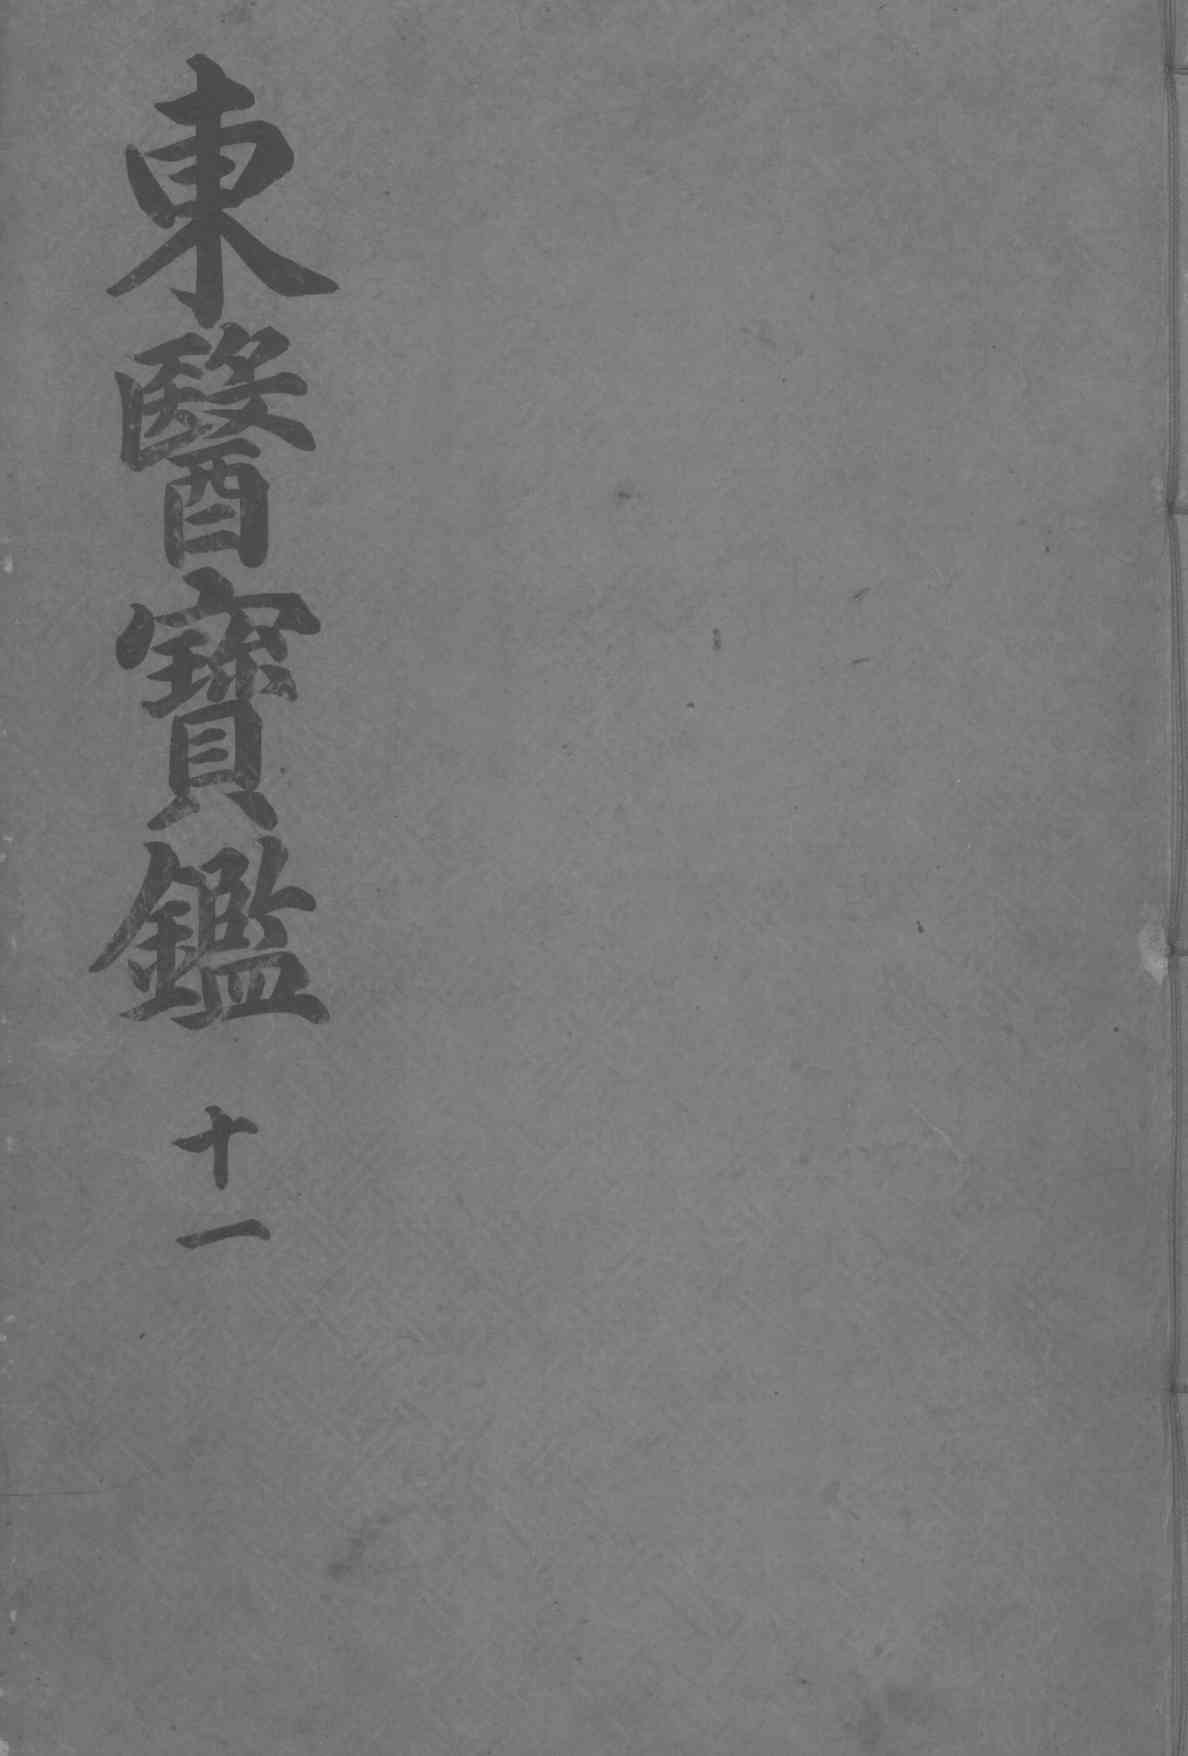 東醫寶鑑 十一